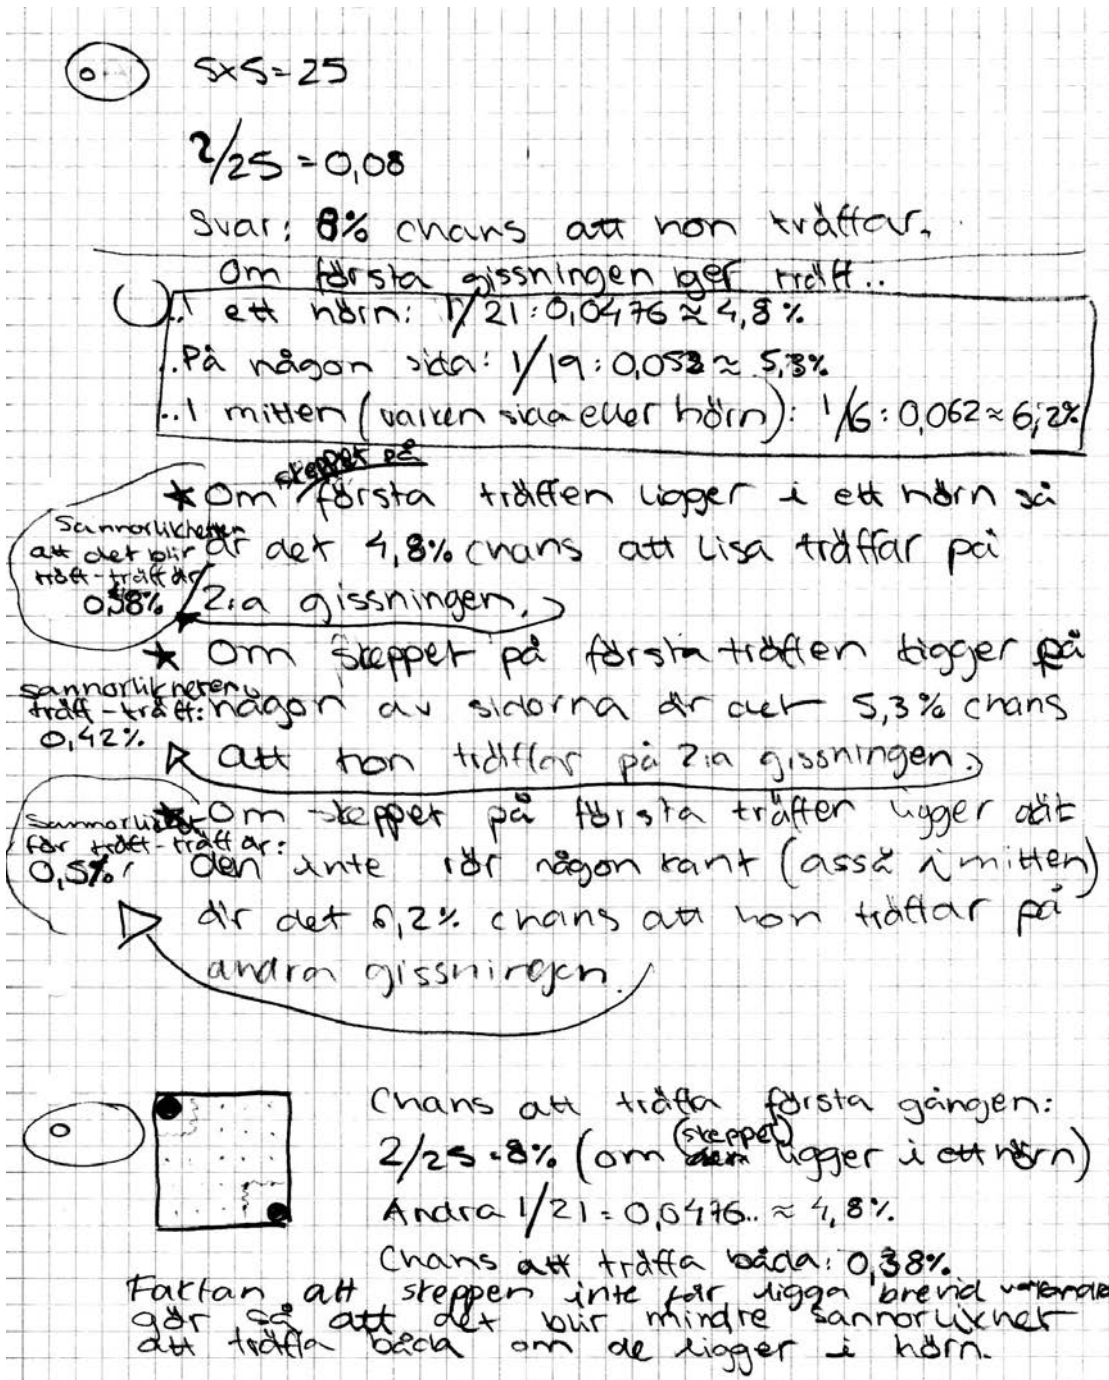 5x5=25
2/25=0,08
Svar: 8% chans att hon träffar.
Om första gissningen ger träff..
..I ett hörn: 1/21:0,0476≈4,8%
..På någon sida: 1/19:0,053≈5,3%
..I mitten (varken sida eller hörn): 1/16:0,062≈6,2%
skeppet på
★ Om första träffen ligger i ett hörn så
är det 4,8% chans att Lisa träffar på
2:a gissningen.
Sannorlikheten
att det blir
träff-träff är
0,38%
★ Om skeppet på första träffen ligger på
någon av sidorna är det 5,3% chans
att hon träffar på 2:a gissningen.
sannorlikheten
träff-träff:
0,42%
★ Om skeppet på första träffen ligger att
den inte rör någon kant (asså i mitten)
är det 6,2% chans att hon träffar på
andra gissningen.
för träff-träff är:
0,5%
Chans att träffa första gången:
2/25=8% (om skeppet ligger i ett hörn)
Andra 1/21=0,0476..≈4,8%
Chans att träffa båda: 0,38%
Faktan att skeppen inte får ligga brevid varandra
gör så att det blir mindre sannorlikhet
att träffa båda om de ligger i hörn.